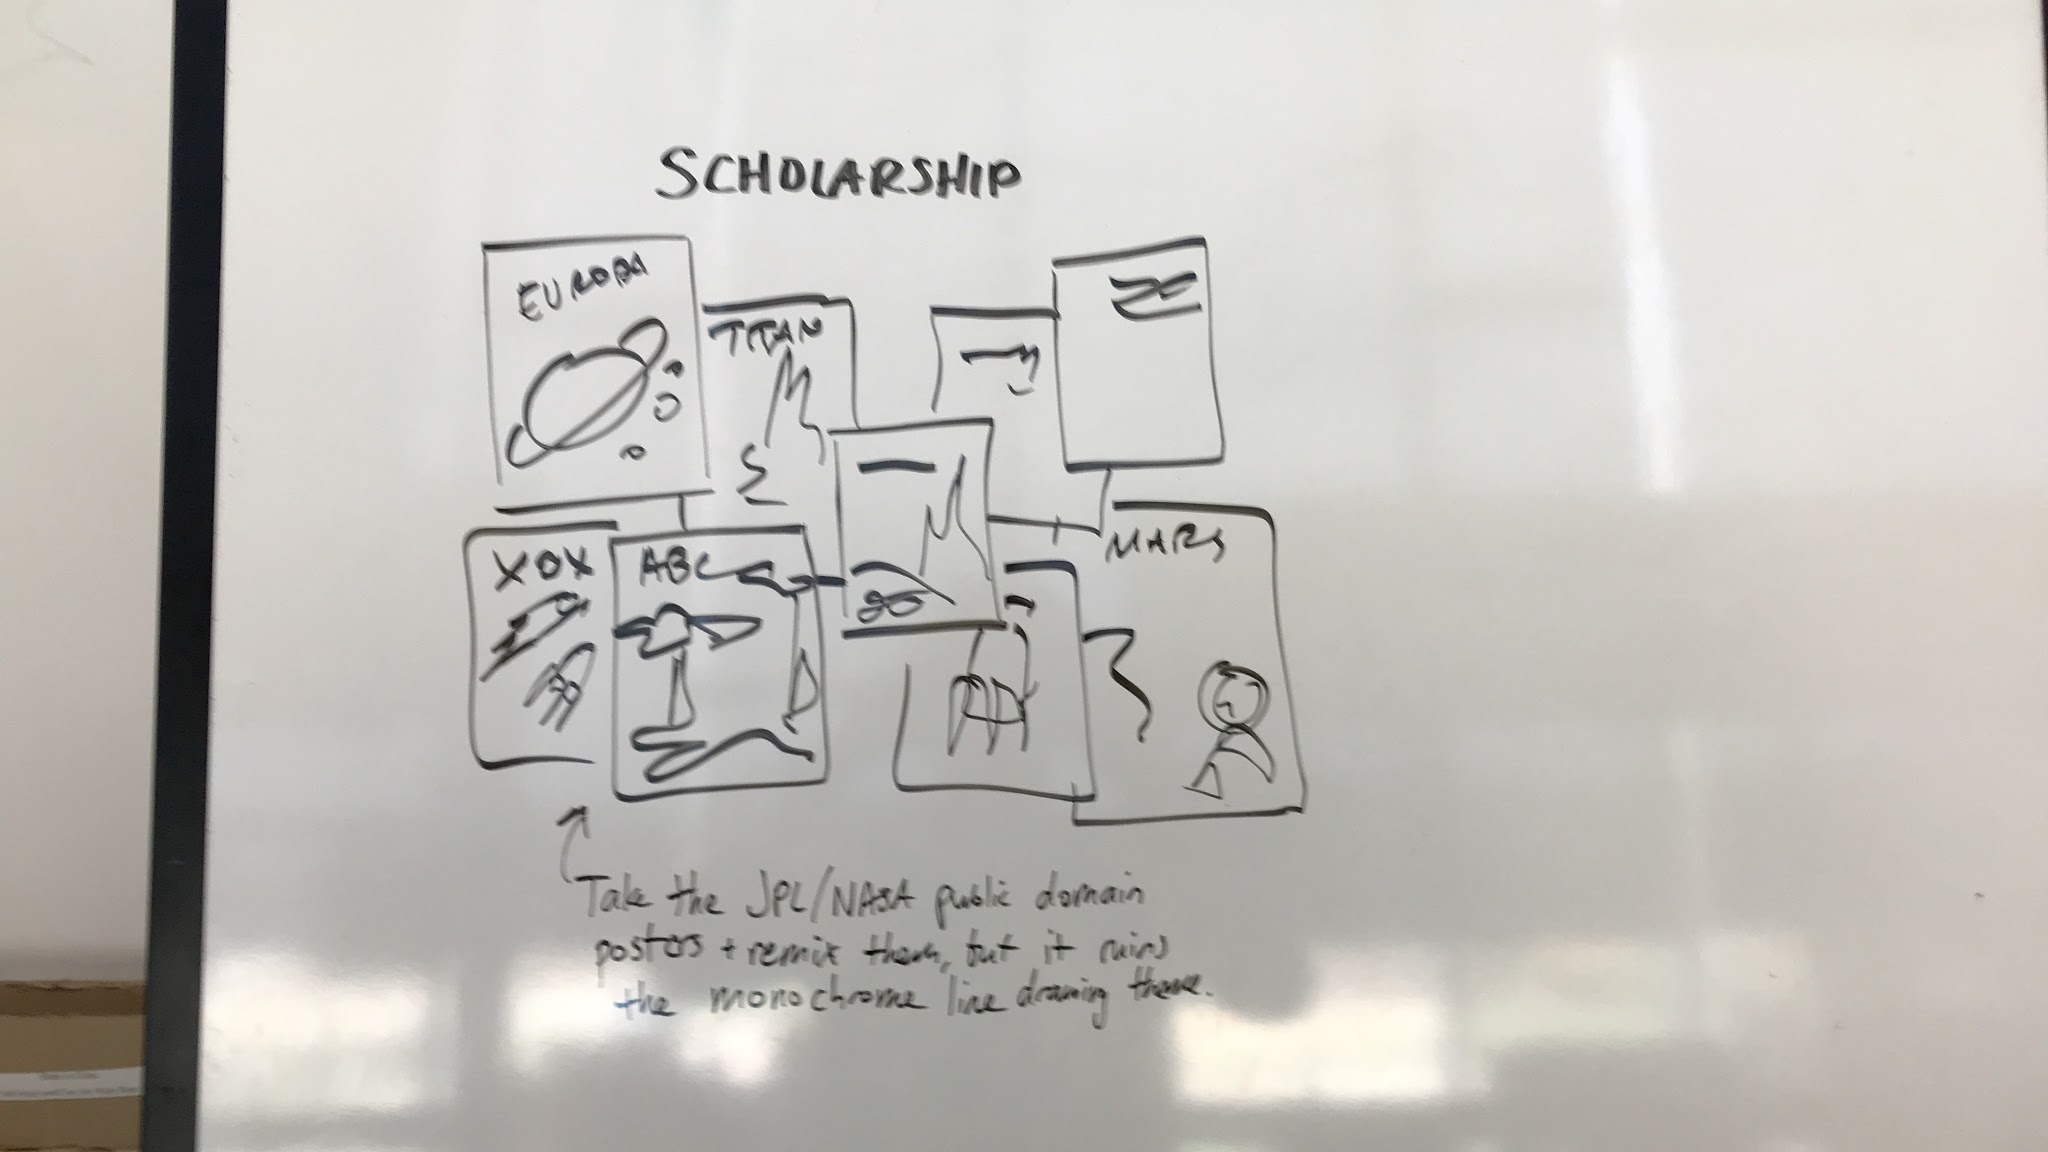 SCHOLARSHIP
EUROPA
TITAN
XOX
ABC
MARS
Take the JPL/NASA public domain
posters + remix them, but it ruins
the monochrome line drawing theme.